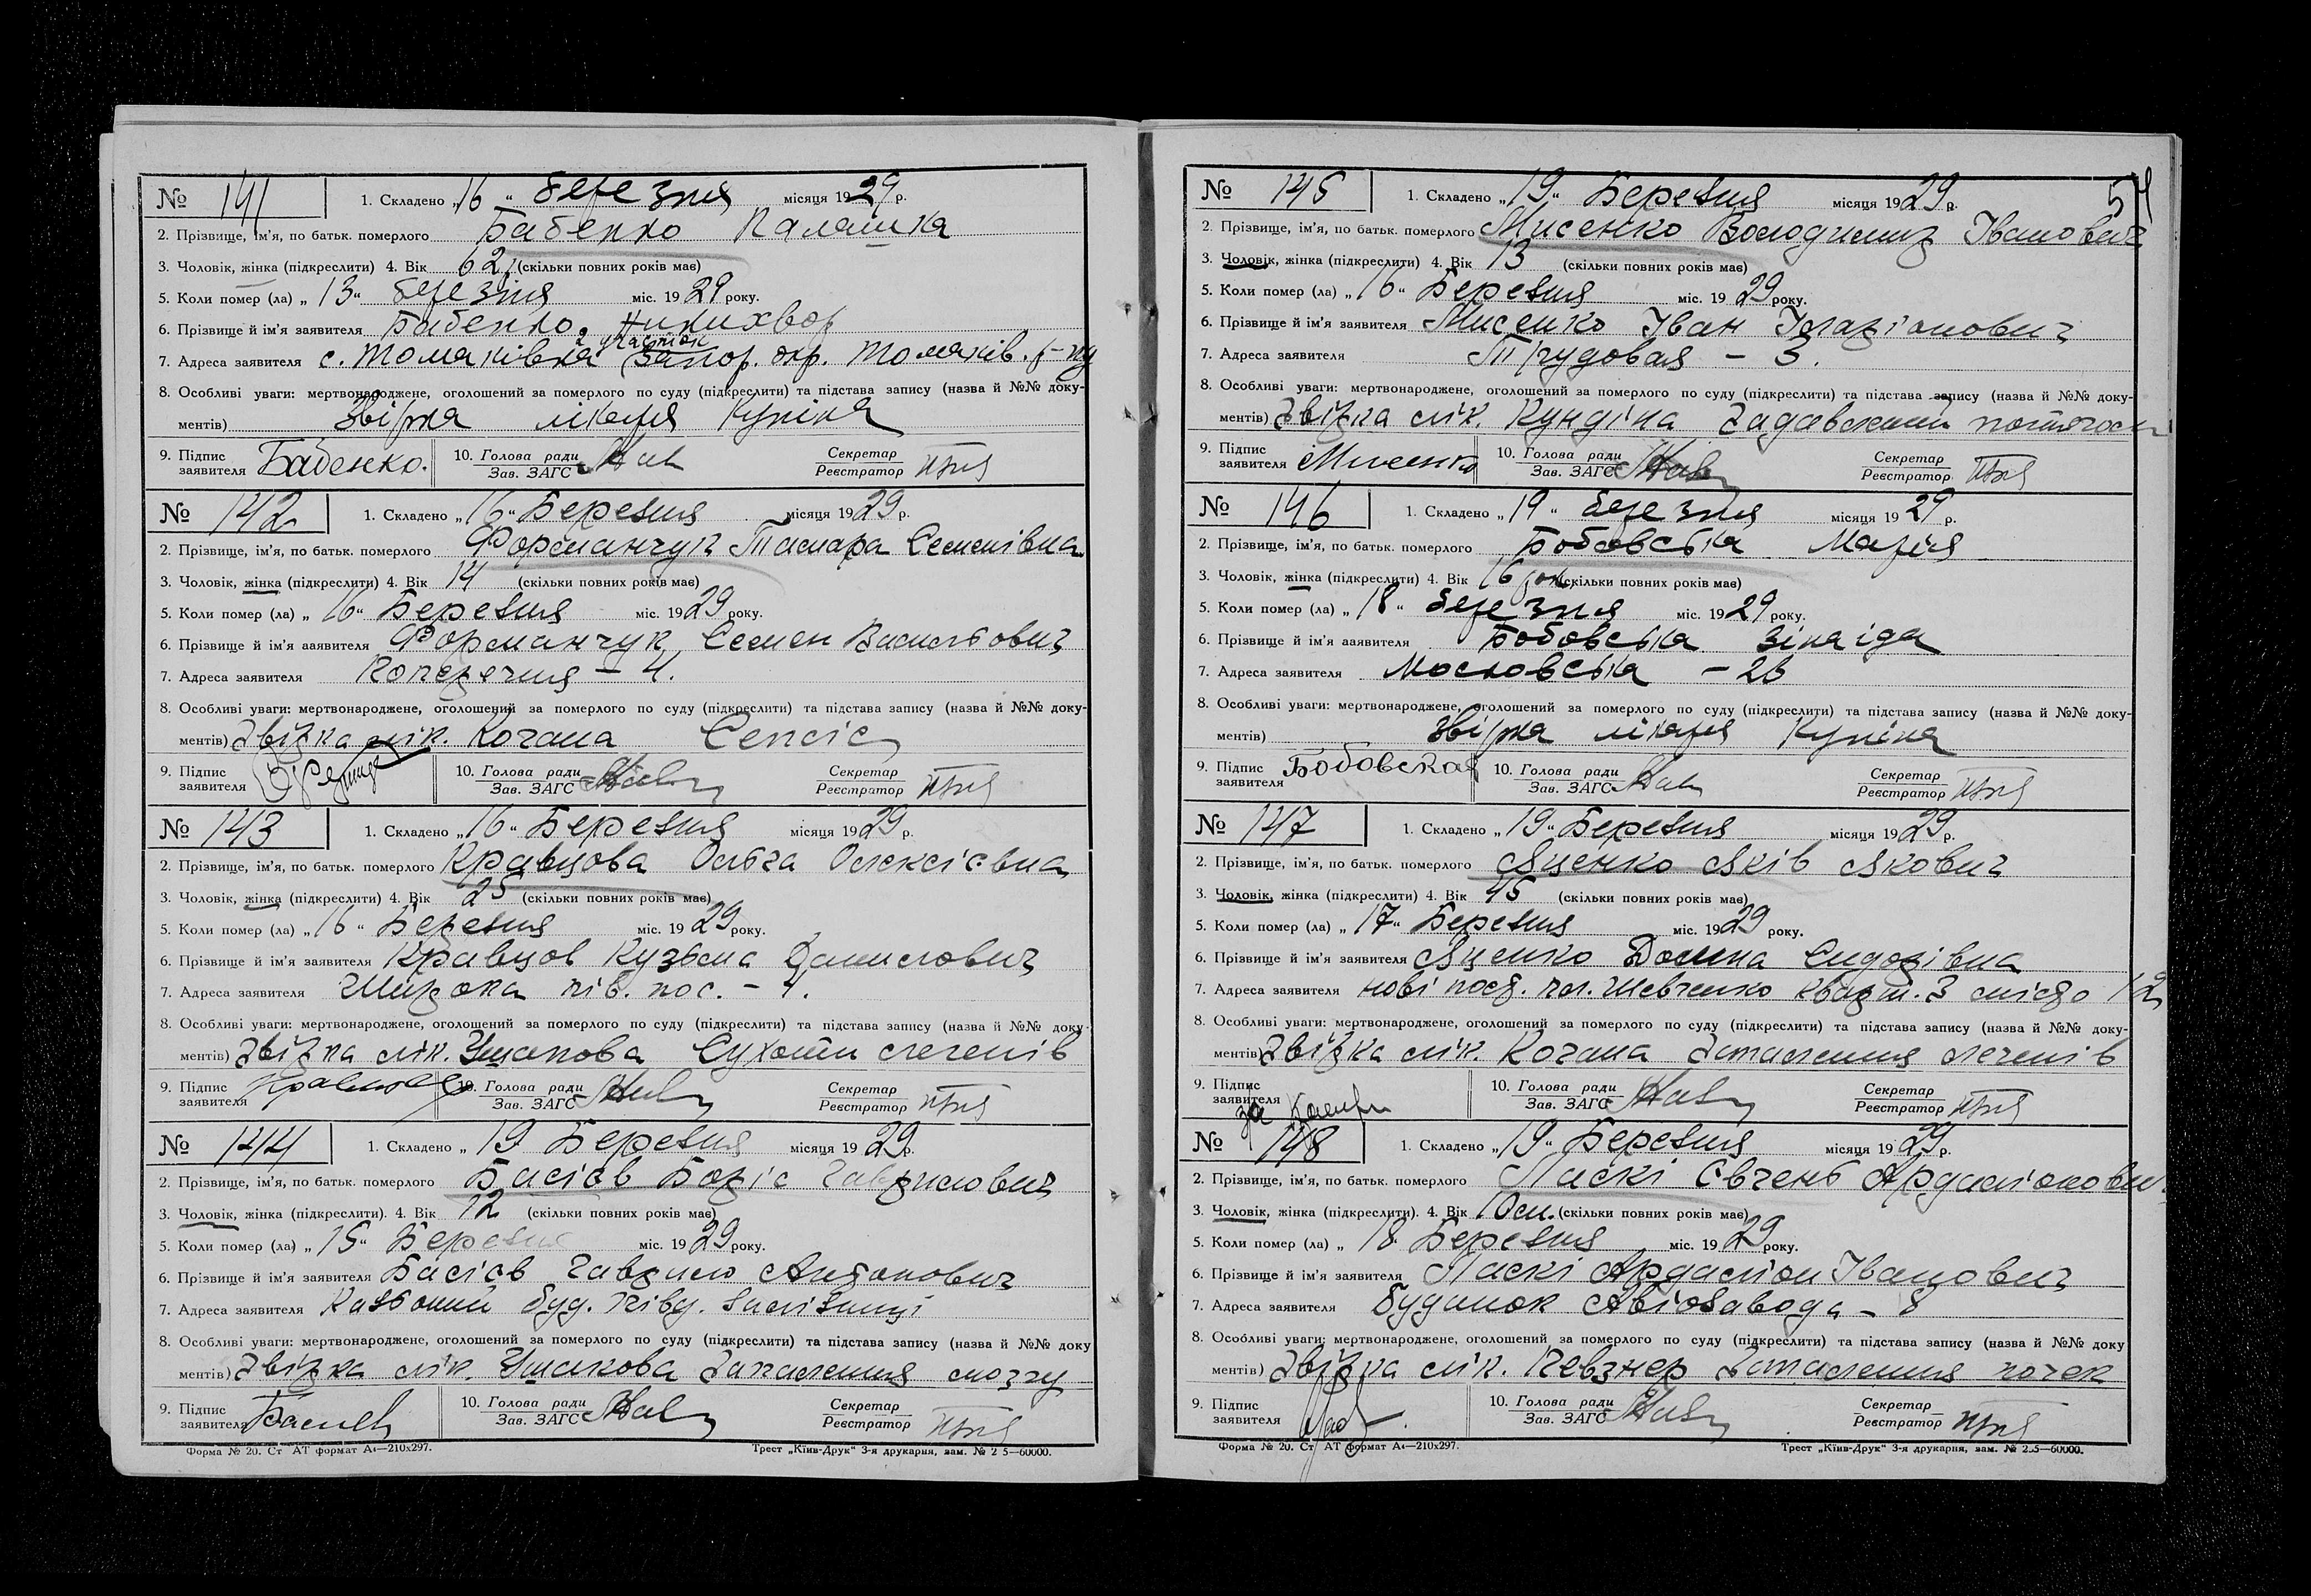 № 141 1. Складено „16“ березня місяця 1929 р.
2. Прізвище, ім'я, по батьк. померлого Бабенко Палашка
3. Чоловік, жінка (підкреслити) 4. Вік 62 (скільки повних років має)
5. Коли помер (ла) „13“ березня міс. 1929 року.
6. Прізвище й ім'я заявителя Бабенко Никихвор
2 участок
7. Адреса заявителя с. Томаківка Запор. окр. Томаків. р-ну
8. Особливі уваги: мертвонароджене, оголошений за померлого по суду (підкреслити) та підстава запису (назва й №№ доку-
ментів) Звідка лікаря Куніна
9. Підпис заявителя Бабенко. 10. Голова ради Зав. ЗАГС Секретар Реєстратор
№ 142 1. Складено „16“ Березня місяця 1929 р.
2. Прізвище, ім'я, по батьк. померлого Форманчук Тамара Семенівна
3. Чоловік, жінка (підкреслити) 4. Вік 14 (скільки повних років має)
5. Коли помер (ла) „16“ Березня міс. 1929 року.
6. Прізвище й ім'я заявителя Форманчук Семен Васильович
7. Адреса заявителя Поперечня – 4.
8. Особливі уваги: мертвонароджене, оголошений за померлого по суду (підкреслити) та підстава запису (назва й №№ доку-
ментів) Звідка лік. Когана Сепсіс
9. Підпис заявителя 10. Голова ради Зав. ЗАГС Секретар Реєстратор
№ 143 1. Складено „16“ Березня місяця 1929 р.
2. Прізвище, ім'я, по батьк. померлого Кравцова Ольга Олексієвна
3. Чоловік, жінка (підкреслити) 4. Вік 25 (скільки повних років має)
5. Коли помер (ла) „16“ Березня міс. 1929 року.
6. Прізвище й ім'я заявителя Кравцов Кузьма Данилович
7. Адреса заявителя Широка пів. пос. –
8. Особливі уваги: мертвонароджене, оголошений за померлого по суду (підкреслити) та підстава запису (назва й №№ доку-
ментів) Звідка лік. Ушакова Сухоти легенів
9. Підпис заявителя 10. Голова ради Зав. ЗАГС Секретар Реєстратор
№ 144 1. Складено „19 Березня місяця 1929 р.
2. Прізвище, ім'я, по батьк. померлого Басієв Боріс Гаврилович
3. Чоловік, жінка (підкреслити). 4. Вік 12 (скільки повних років має)
5. Коли помер (ла) „15“ Березня міс. 1929 року.
6. Прізвище й ім'я заявителя Басієв Гаврило Антонович
7. Адреса заявителя Казьоний буд. Півд. залізниці
8. Особливі уваги: мертвонароджене, оголошений за померлого по суду (підкреслити) та підстава запису (назва й №№ доку
ментів) Звідка лік. Ушакова Запалення мозгу
9. Підпис заявителя Басиев 10. Голова ради Зав. ЗАГС Секретар Реєстратор
Форма № 20. Ст АТ формат А4—210х297. Трест „Київ-Друк“ 3-я друкарня, зам. № 2 5—60000.
54
№ 145 1. Складено „19“ Березня місяця 1929 р.
2. Прізвище, ім'я, по батьк. померлого Мисенко Володимир Іванович
3. Чоловік, жінка (підкреслити) 4. Вік 13 (скільки повних років має)
5. Коли помер (ла) „16“ Березня міс. 1929 року.
6. Прізвище й ім'я заявителя Мисенко Іван Іларіонович
7. Адреса заявителя Трудовая – 3.
8. Особливі уваги: мертвонароджене, оголошений за померлого по суду (підкреслити) та підстава запису (назва й №№ доку-
ментів) Звідка лік. Кундіна Задавлений потягом
9. Підпис заявителя Мисенко 10. Голова ради Зав. ЗАГС Секретар Реєстратор
№ 146 1. Складено „19“ березня місяця 1929 р.
2. Прізвище, ім'я, по батьк. померлого Бобовська Марія
3. Чоловік, жінка (підкреслити) 4. Вік 16 рок. (скільки повних років має)
5. Коли помер (ла) „18“ березня міс. 1929 року.
6. Прізвище й ім'я аявителя Бобовська Зінаіда
7. Адреса заявителя Московська – 26
8. Особливі уваги: мертвонароджене, оголошений за померлого по суду (підкреслити) та підстава запису (назва й №№ доку-
ментів) Звідка лікаря Куніна
9. Підпис заявителя Бобовская 10. Голова ради Зав. ЗАГС Секретар Реєстратор
№ 147 1. Складено „19“ Березня місяця 1929 р.
2. Прізвище, ім'я, по батьк. померлого Яценко Яків Якович
3. Чоловік, жінка (підкреслити) 4. Вік 45 (скільки повних років має)
5. Коли помер (ла) „17“ Березня міс. 1929 року.
6. Прізвище й ім'я заявителя Яценко Домна Сидорівна
7. Адреса заявителя нові посд. пл. Шевченко кварт. 3 місто 12
8. Особливі уваги: мертвонароджене, оголошений за померлого по суду (підкреслити) та підстава запису (назва й №№ доку-
ментів) Звідка лік. Когана Запалення легенів
9. Підпис заявителя за 10. Голова ради Зав. ЗАГС Секретар Реєстратор
№ 148 1. Складено „19“ Березня місяця 1929 р.
2. Прізвище, ім'я, по батьк. померлого Ласкі Євгень Ардаліонович
3. Чоловік, жінка (підкреслити). 4. Вік 10 м. (скільки повних років має)
5. Коли помер (ла) „18 Березня міс. 1929 року.
6. Прізвище й ім'я заявителя Ласкі Ардаліон Іванович
7. Адреса заявителя будинок Авіозавода – 8
8. Особливі уваги: мертвонароджене, оголошений за померлого по суду (підкреслити) та підстава запису (назва й №№ доку-
ментів) Звідка лік. Певзнер Запалення почек
9. Підпис заявителя 10. Голова ради Зав. ЗАГС Секретар Реєстратор
Форма № 20. Ст АТ формат А4—210х297. Трест „Київ-Друк“ 3-я друкарня, зам. № 2.5—60000.